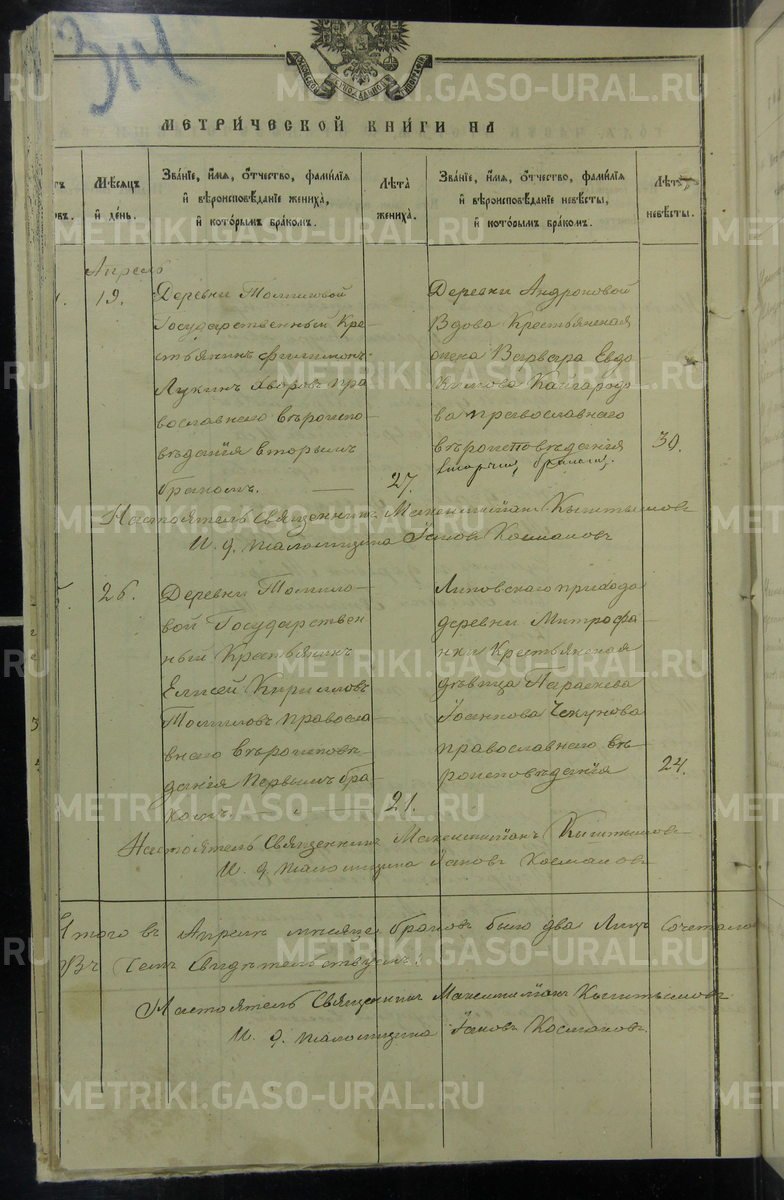 314
МЕТРИ́ЧЕСКОЙ КНИ́ГИ НА
Мѣсяцъ
й де́нь.
Зва́нїе, и́мя, о́тчество, фами́лїя
й вѣроисповѣ́данїе жениха̀,
й кото́рымъ бра́комъ.
Лѣта̀
жениха̀.
Зва́нїе, и́мя, о́тчество, фами́лїя
й вѣроисповѣ́данїе невѣ́сты,
й кото́рымъ бра́комъ.
Лѣта̀
невѣ́сты.
Апрель
19.
Деревни Томиловой
Государственный Кре-
стьянинъ Филимонъ
Лукинъ Хворовъ пра
вославнаго вѣроиспо-
вѣданія вторымъ
бракомъ.
27.
Деревни Андроновой
Вдова Крестьянская
Варвара Евдо
кимова Кайгородо
ва православнаго
вѣроисповѣданія
вторымъ бракомъ.
30.
Настоятель Священникъ Максимиліанъ Кыштымовъ
И. д. псаломщика Іаковъ Космаковъ
26.
Деревни Томило-
вой Государствен
ный Крестьянинъ
Елисей Кирилловъ
Томиловъ правосла
внаго вѣроисповѣ-
данія Первымъ бра
комъ.
21.
Липовскаго прихода
деревни Митрофа
новки Крестьянская
дѣвица Параскева
Іоаннова Чекунова
православнаго вѣ-
роисповѣданія
24.
Настоятель Священникъ Максимиліанъ Кыштымовъ
И. д. псаломщика Іаковъ Космаковъ
Итого въ Апрелѣ мѣсяцѣ браковъ было два Лицъ Сочетало
Въ Семъ Свидѣтельствуемъ:
Настоятель Священникъ Максимиліанъ Кыштымовъ
И. д. псаломщика Іаковъ Космаковъ.
METRIKI.GASO-URAL.RU